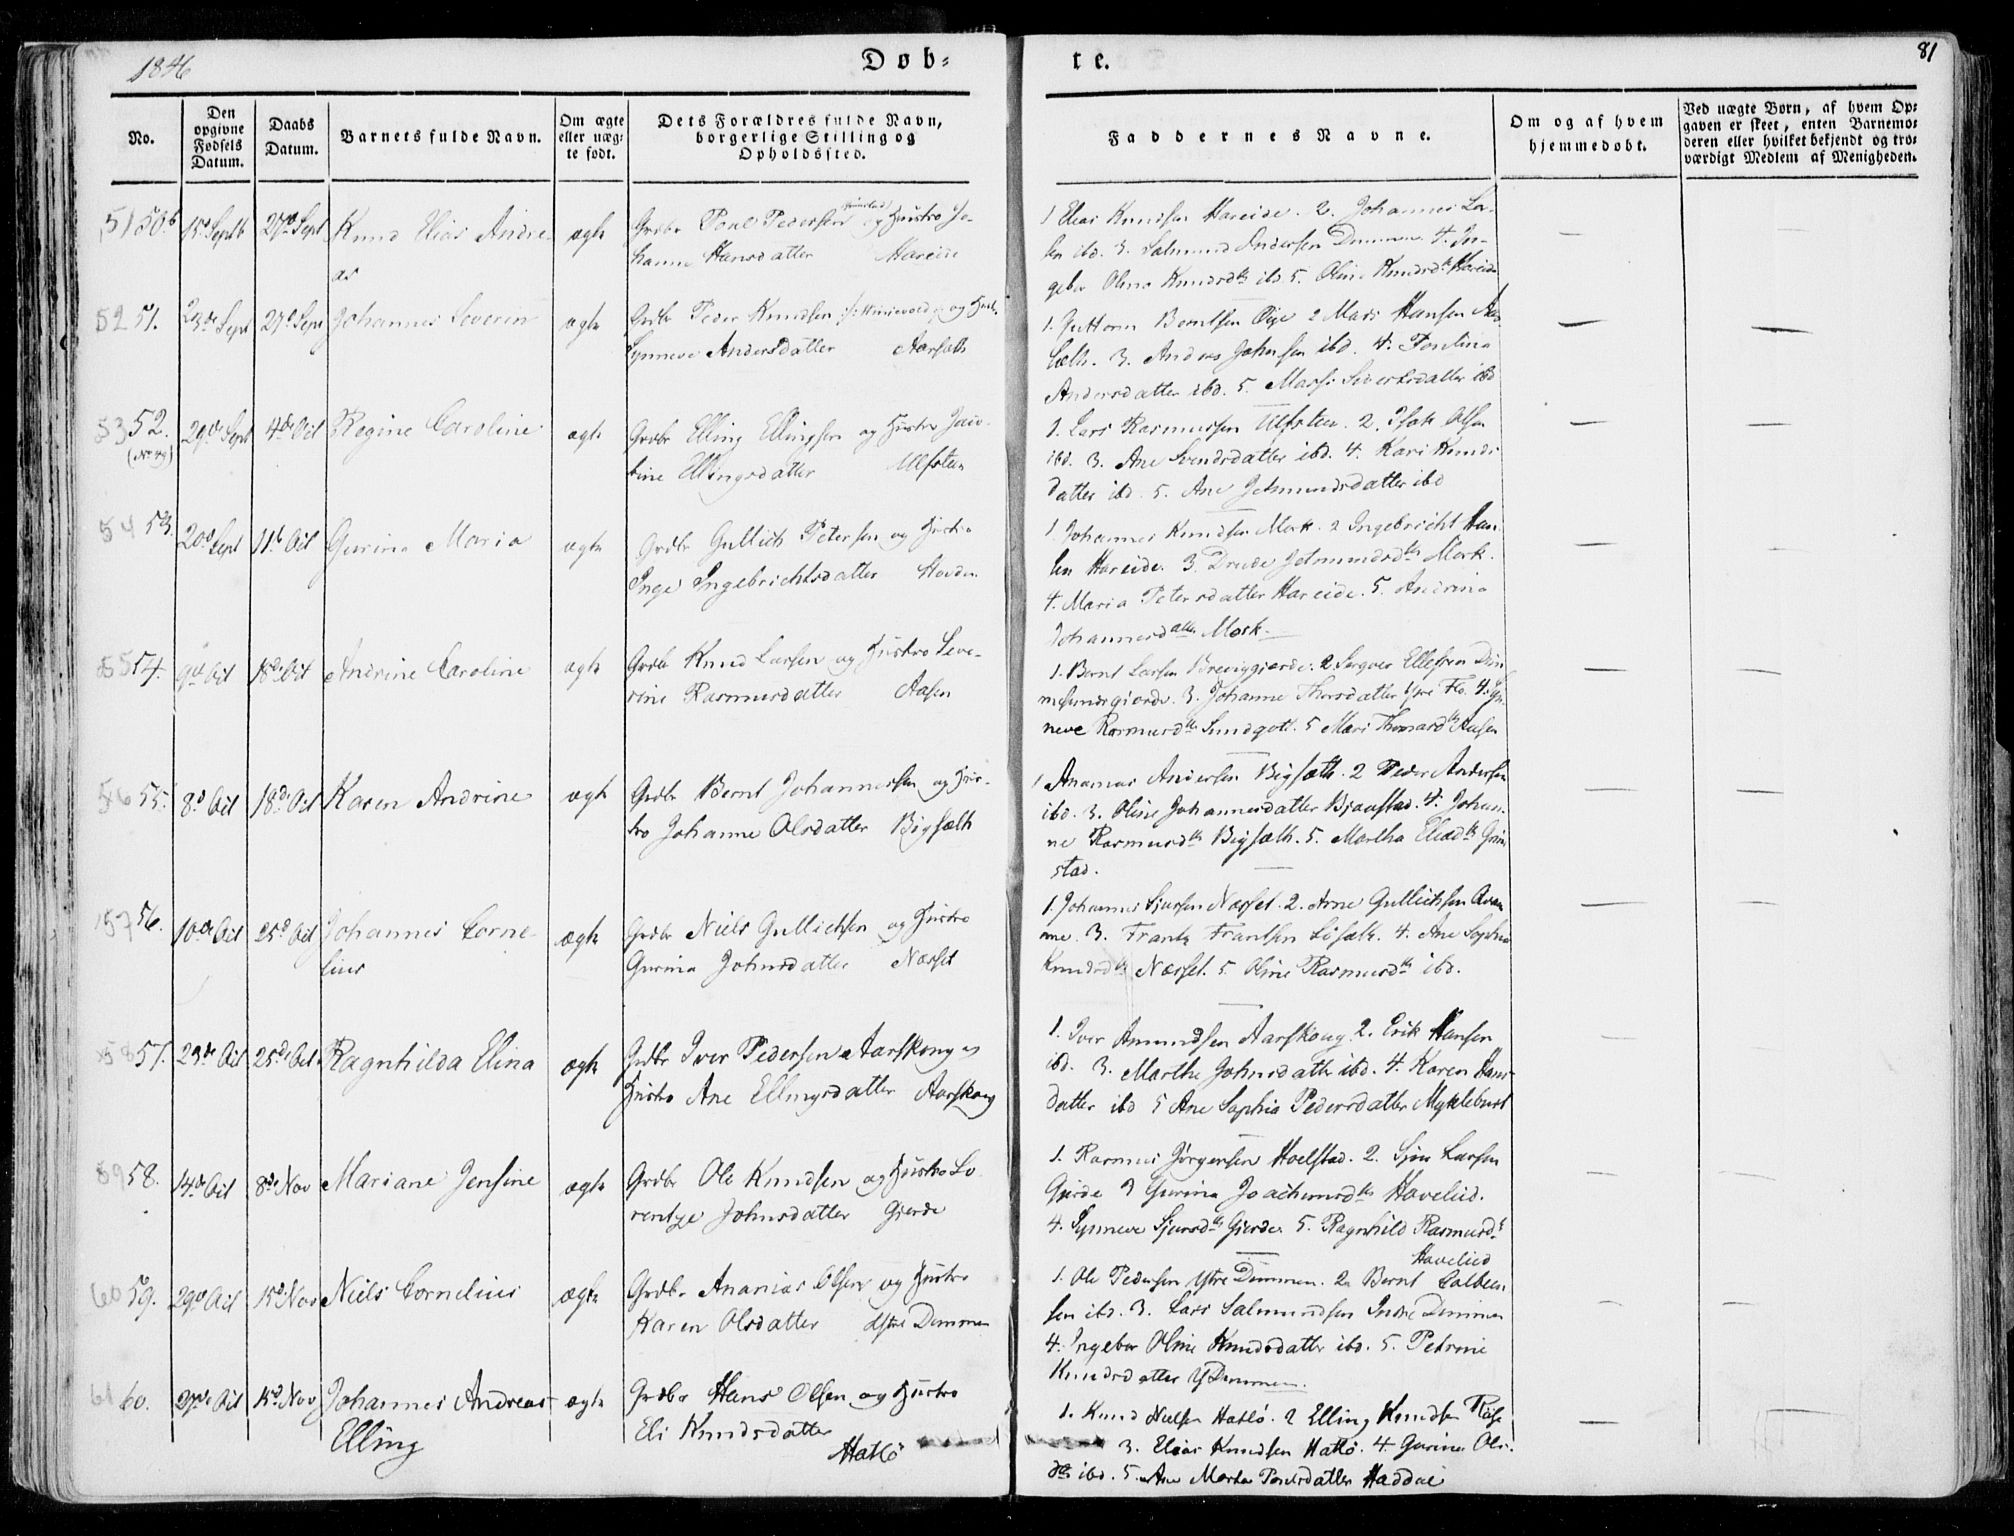 1846
Døb-
te.
81
No.
Den opgivne Fødsels Datum.
Daabs Datum.
Barnets fulde Navn.
Om ægte eller uæg-te født.
Dets Forældres fulde Navn, borgerlige Stilling og Opholdssted.
Faddernes Navne.
Om og af hvem hjemmedøbt.
Ved uægte Børn, af hvem Op-gaven er skeet, enten Barnemo-deren eller hvilket bekjendt og tro-værdigt Medlem af Menigheden.
51 50.b 15d Septb 27d Sept Knud Elias Andre-
as
ægte
Grdbr Poul Pedersen og Hustro Jo-
hanne Hansdatter Hareide
1 Elias Knudsen Hareide. 2. Johannes La-
sen ibd. 3. Salmund Andersen Dimmen 4. In-
gebor Olina Knudsdtr ibd 5. Oline Knudsdtr Hareide
52 51. 23de Sept 27d Sept Johannes Severin
ægte
Grdbr Peder Knudsen og Hust.
Synneve Andersdatter Aarsæth
1. Guttorm Berntsen Øye 2 Mads Hansen Aar
sæth. 3. Andreas Johnsen ibd. 4. Paulina
Andersdatter ibd. 5. Marthe Sivertsdatter ibd
53 52. (No 49) 29de Sept 4de Oct Regine Caroline
ægte
Grdbr Elling Ellingsen og Hustro Jaco-
bine Ellingsdatter Ulfsteen
1. Lars Rasmussen Ulfsteen. 2. Isak Olsen
ibd. 3. Ane Svendsdatter ibd. 4. Kari Knuds
datter ibd. 5. Ane Jetmundsdatter ibd
54 53. 20d Sept 11te Oct Gurine Maria
ægte
Grdbr Gullich Petersen og Hustro
Inge Ingebrichtsdatter Hovden
1. Johannes Knudsen Mork. 2 Ingebricht Han-
sen Hareide. 3. Drude Jetmundsdtr Mork.
4. Maria Petersdatter Hareide. 5. Andrina
Johannesdatter Mork
55 54. 9de Oct 18de Oct Andrine Caroline
ægte
Grdbr Knud Larsen og Hustro Seve-
rine Rasmusdatter Aasen
1. Bernt Larsen Breviggierde. 2 Siver Ellefsen Dim
mesundsgierde. 3. Johanne Thorsdatter Ytre Flø. 4. Syn
neve Rasmusdtr Sundgott. 5 Mari Thomasdtr Aasen
56 55. 8d Oct 18d Oct Karen Andrine
ægte
Grdbr Bernt Johannessen og Hus-
tro Johanne Olsdatter Bigsæth
1 Ananias Andersen Bigsæth. 2 Peder Andersen
ibd. 3. Oline Johannesdatter Bjaastad. 4. Johan-
ne Rasmusdtr Bigsæth. 5. Martha Eliasdtr Grim
stad.
57 56. 10de Oct 25d Oct Johannes Corne-
lius
ægte
Grdbr Niels Gullichsen og Hustro
Gurina Johnsdatter Næsset
1. Johannes Sjursen Næsset. 2. Arne Gullichsen Qvan
me. 3. Frantz Frantsen Lisæth. 4. Ane Sophia
Knudsdtr Næsset. 5 Oline Rasmusdtr ibd.
58 57. 23de Oct 25de Oct. Ragnhilda Elina
ægte
Grdbr Iver Pedersen Aarskoug og
Hustro Ane Ellingsdatter Aarskoug
1. Iver Amundsen Aarskoug. 2. Erik Hansen
ibd. 3. Marthe Johnsdatter ibd. 4. Karen Hans-
datter ibd 5 Ane Sophia Pedersdatter Myklebust
59 58. 14de Oct 8de Nov Mariane Jensine
ægte
Grdbr Ole Knudsen og Hustro Lo-
rentze Johnsdatter Gjerde
1. Rasmus Jørgensen Hoelstad. 2. Sjur Larsen
Gjerde 3 Gurina Joachimsdtr Havelied.
4. Synneve Sjursdtr Gjerde. 5. Ragnhild Rasmusdtr
Havelied
60 59. 29de Oct 15d Nov Niels Cornelius
ægte
Grdbr Ananias Olsen og Hustro
Karen Olsdatter Ystre Dimmen
1. Ole Pedersen Ystre Dimmen. 2. Bernt Colben-
sen ibd. 3. Lars Salmundsen Indre Dimmen
4. Ingebor Oline Knudsdatter ibd. 5. Petrine
Knudsdatter Y Dimmen.
61 60. 27de Oct 15d Nov Johannes Andreas
Elling
ægte
Grdbr Hans Olsen og Hustro
Eli Knudsdatter
Hatlø
1. Knud Nielsen Hatlø. 2 Elling Knudsen Røise
3. Elias Knudsen Hatlø. 4 Gurine Ols-
dtr ibd. 5. Ane Marta Poulsdatter Haddal